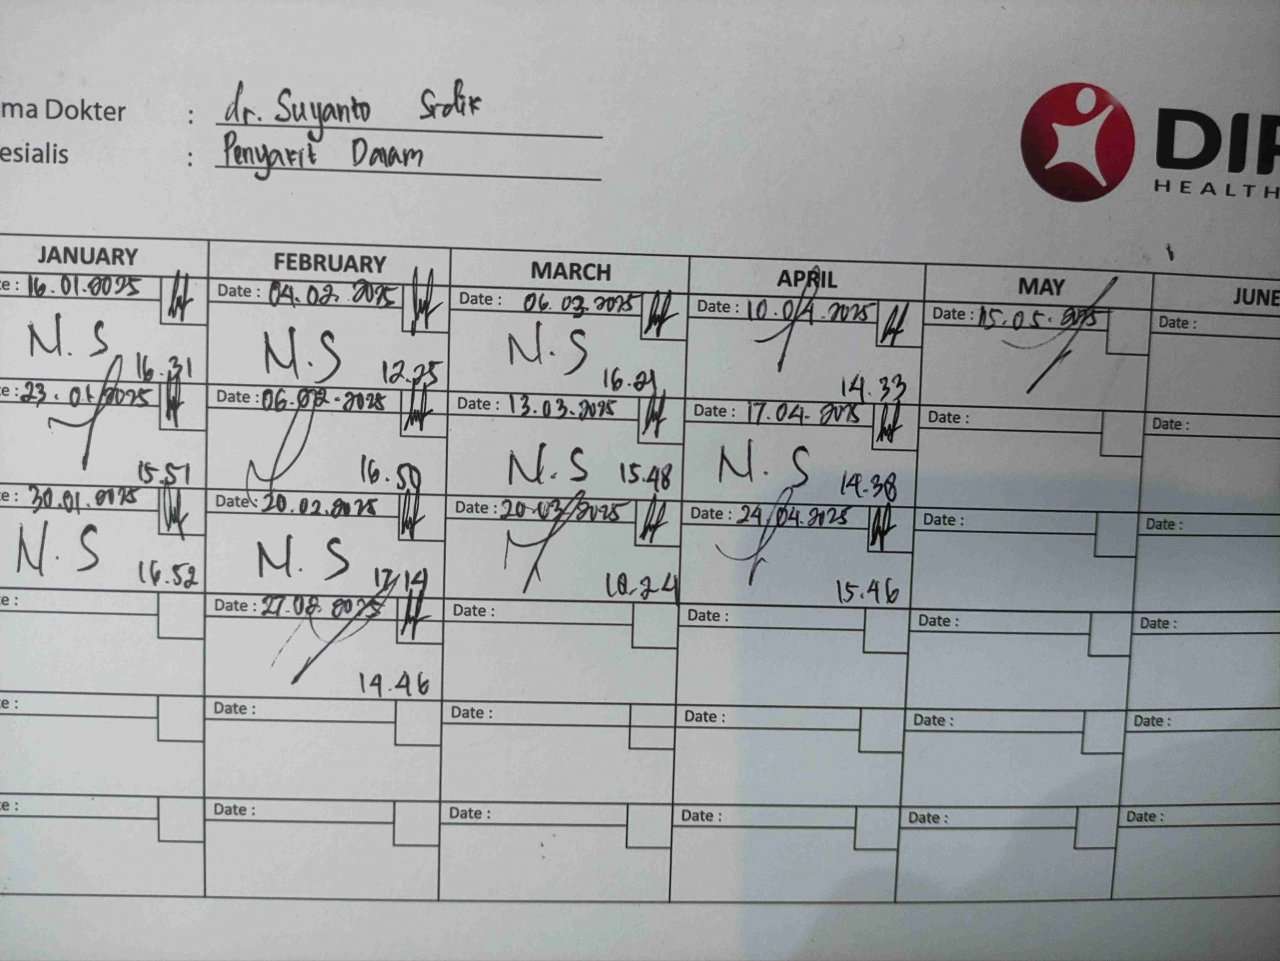 ma Dokter : dr. Suyanto Srdlik
esialis : Penyakit Dalam
DIP
HEALTH
JANUARY FEBRUARY MARCH APRIL MAY JUNE
e : 16.01.2025 Date : 04.02.2025 Date : 06.03.2025 Date : 10.04.2025 Date : 15.05.2025 Date :
N.S N.S N.S
16.31 12.25 16.21 14.33
e : 23.01.2025 Date : 06.02.2025 Date : 13.03.2025 Date : 17.04.2025 Date : Date :
N.S N.S
15.51 16.50 15.48 14.38
e : 30.01.2025 Date : 20.02.2025 Date : 20.03.2025 Date : 24.04.2025 Date : Date :
N.S N.S
16.52 17.14 18.24 15.46
e : Date : 27.02.2025 Date : Date : Date : Date :
14.46
e : Date : Date : Date : Date : Date :
e : Date : Date : Date : Date : Date :